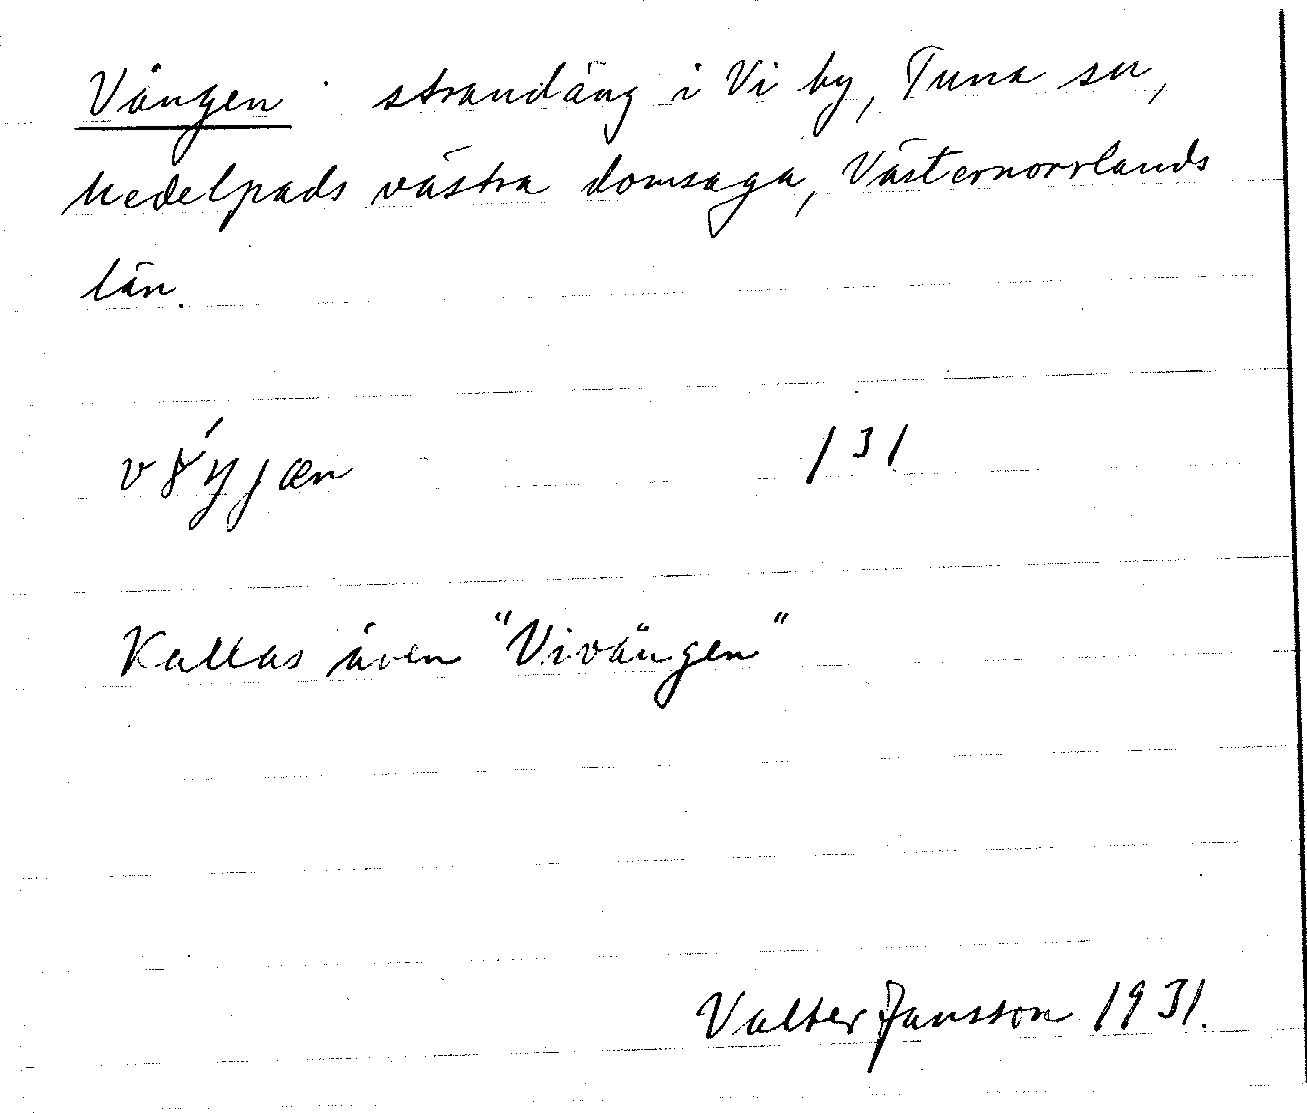 Vängen strandäng i Vi by, Tuna sn,
Medelpads västra domsaga, Västernorrlands
län.
/31/
Kallas även "Vivängen"
Valter Jansson 1931.